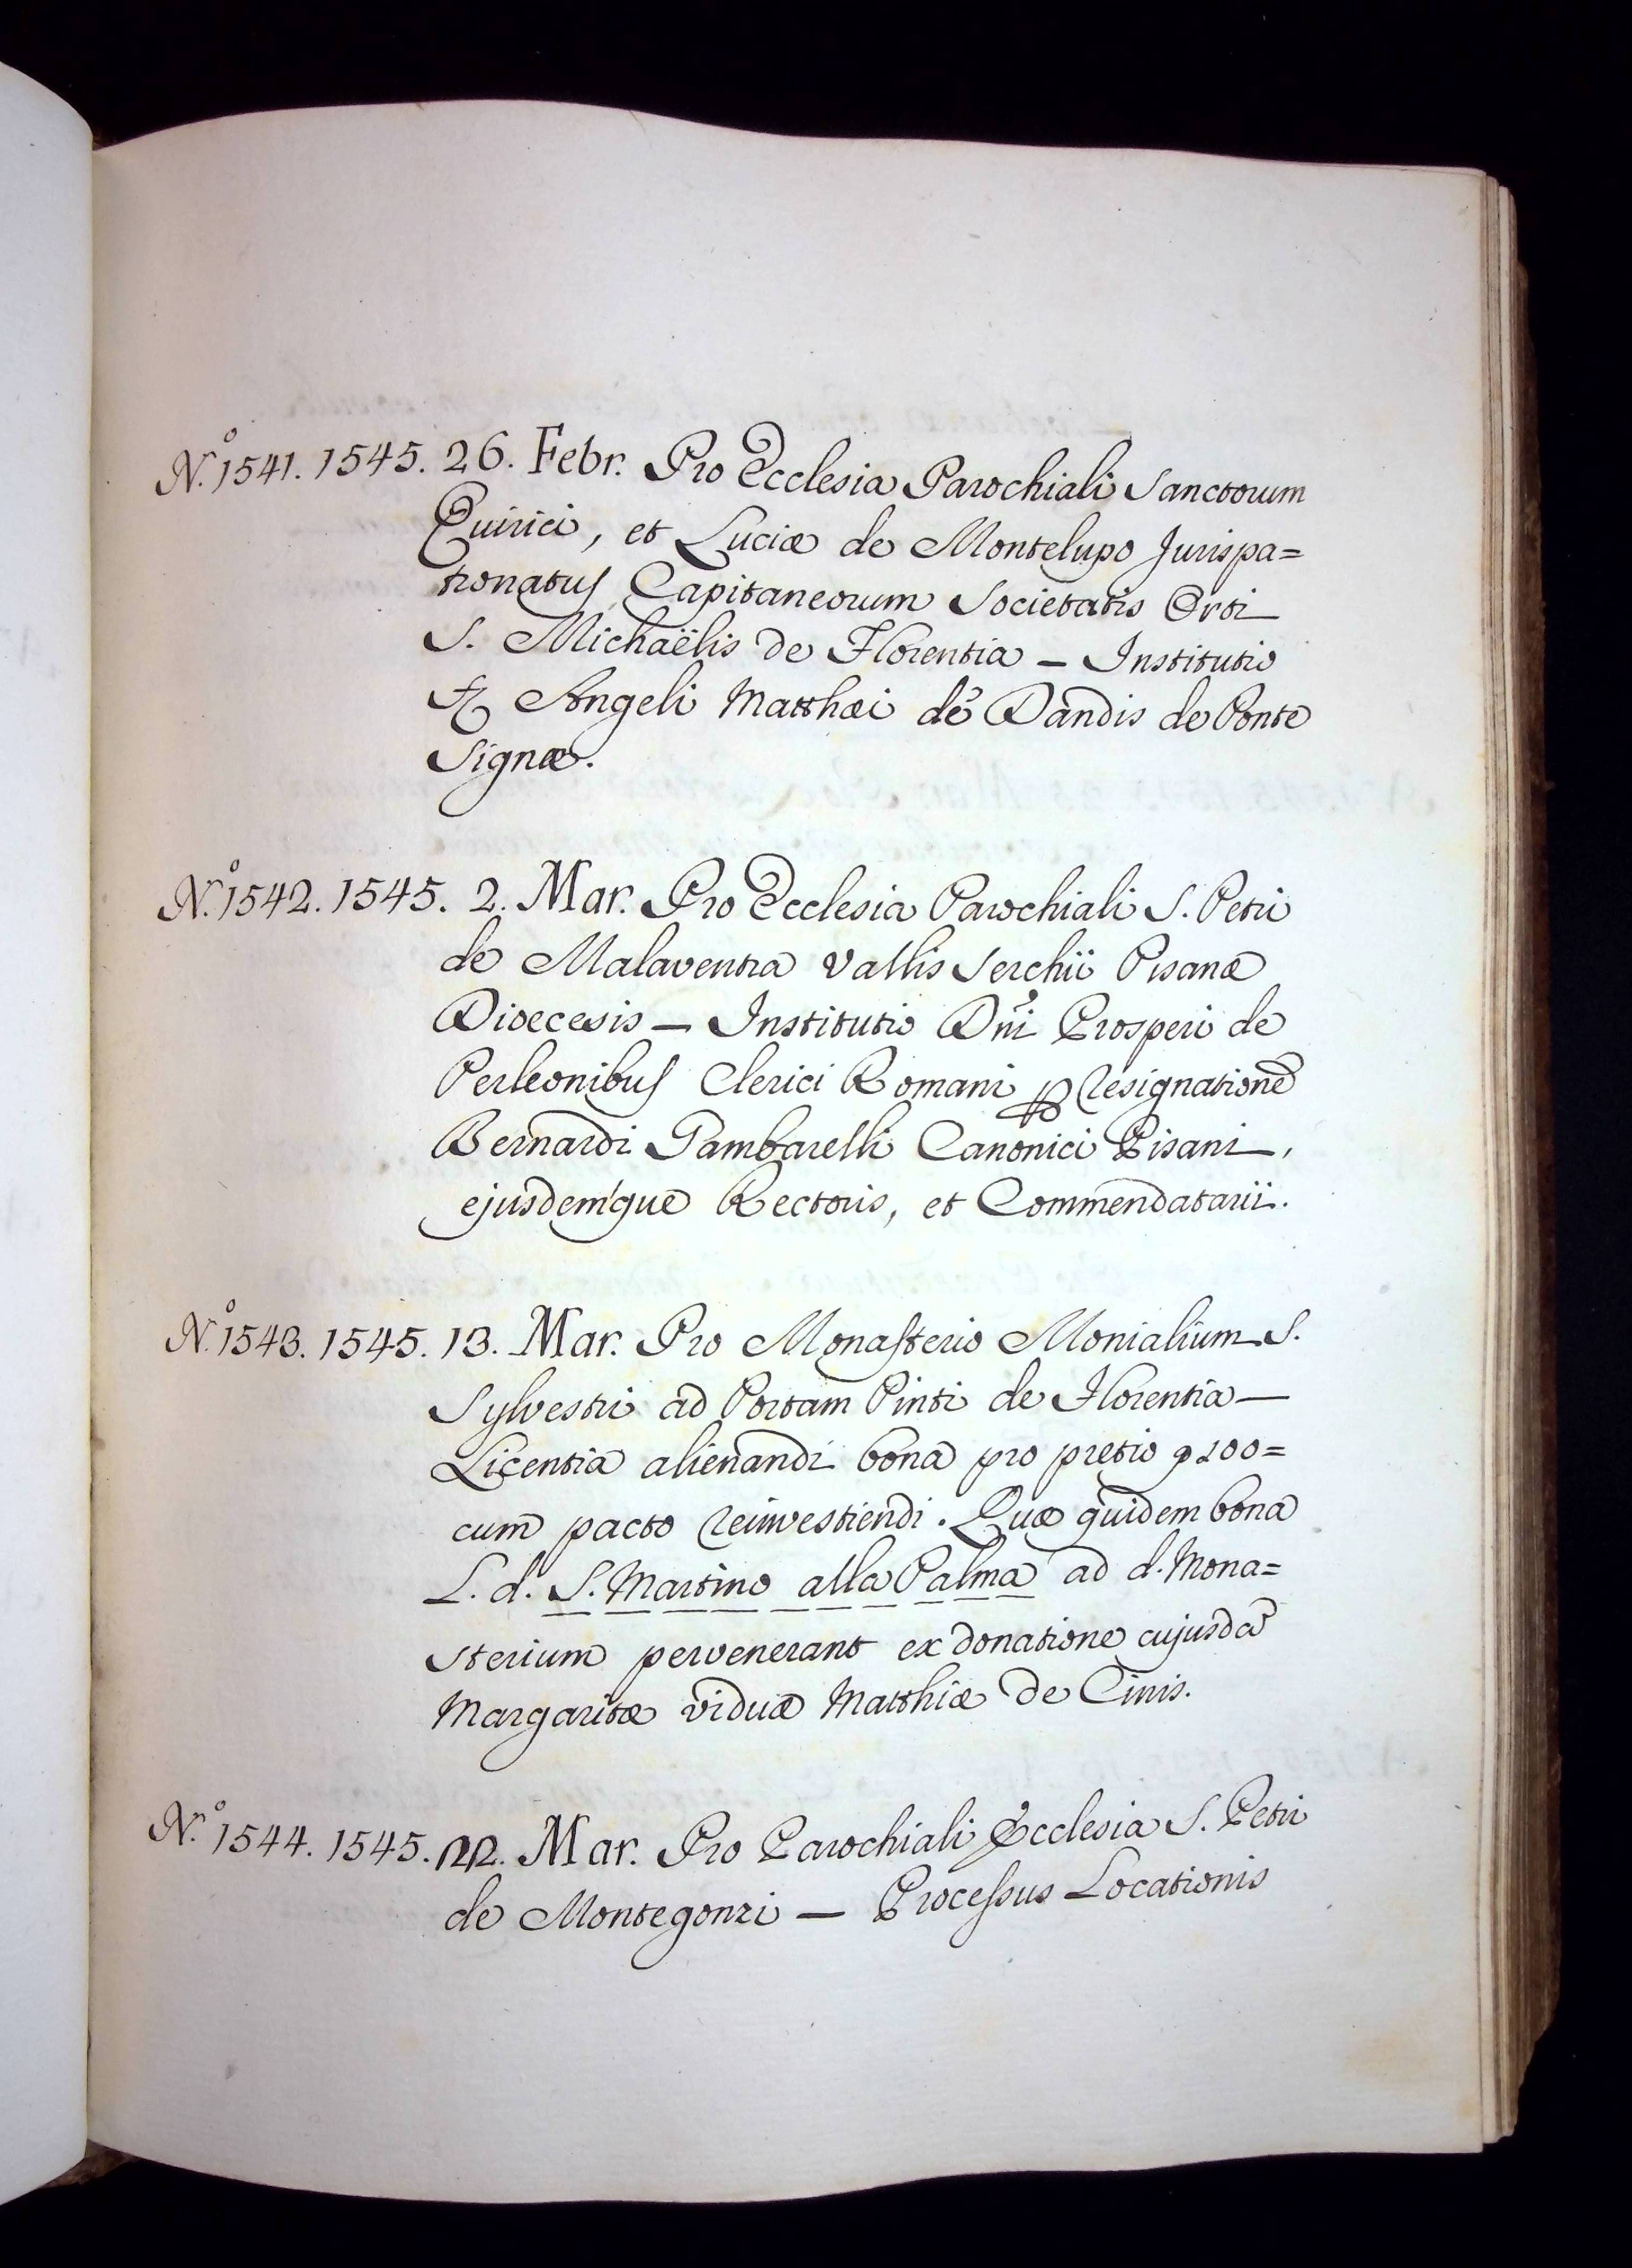 N.º 1541. 1545. 26. Febr. Pro Ecclesia Parochiali Sanctorum
Quirici, et Luciæ de Montelupo Jurispa=
tronatus Capitaneorum Societatis Orti
S. Michaëlis de Florentia — Institutio
Angeli Matthæi de' Dandis de Ponte
Signæ.
N.º 1542. 1545. 2. Mar. Pro Ecclesia Parochiali S. Petri
de Malaventra Vallis Serchii Pisanæ
Dioecesis — Institutio Dñi Prosperi de
Perleonibus Clerici Romani p resignationē
Bernardi Gambarelli Canonici Pisani,
ejusdemque Rectoris, et Commendatarii.
N.º 1543. 1545. 13. Mar. Pro Monasterio Monialium S.
Sylvestri ad Portam Pinti de Florentia —
Licentia alienandi bona pro pretio 200=
cum pacto reinvestiendi. Quæ quidem bona
L. d. S. Martino alla Palma ad d. Mona=
sterium pervenerant ex donatione cujusdā
Margaritæ viduæ Matthiæ de Cinis.
N.º 1544. 1545. 22. Mar. Pro Parochiali Ecclesia S. Petri
de Montegonzi — Processus Locationis